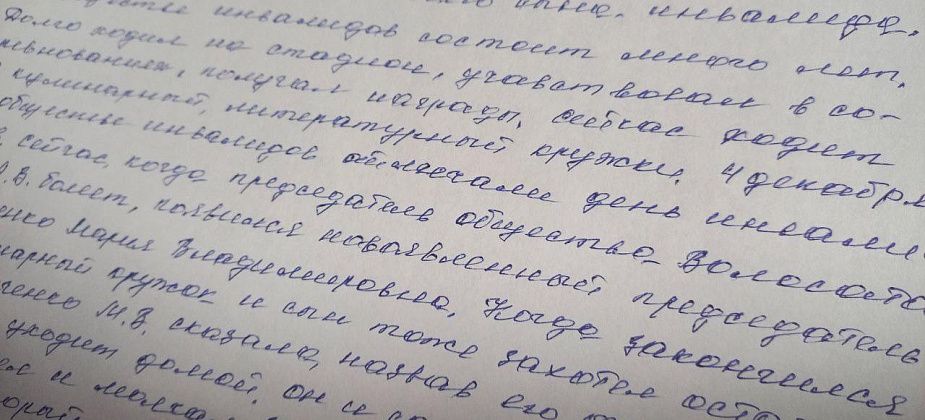 сына. инвалида.
инвалидов состоит много лет.
Долго ходил на стадион, участвовал в со-
ревнованиях, получал награды. сейчас ходит
кулинарный, литературный кружки. 4 декабря
обществе инвалидов отмечали день инвали
сейчас, когда председатель общества Волосато
В. болеет, появился новоявленный председатель
енко Мария Владимировна. Когда закончился
нарный кружок и сын тоже захотел оста
ченко М.В. сказала, назвав его
уходит домой. он и